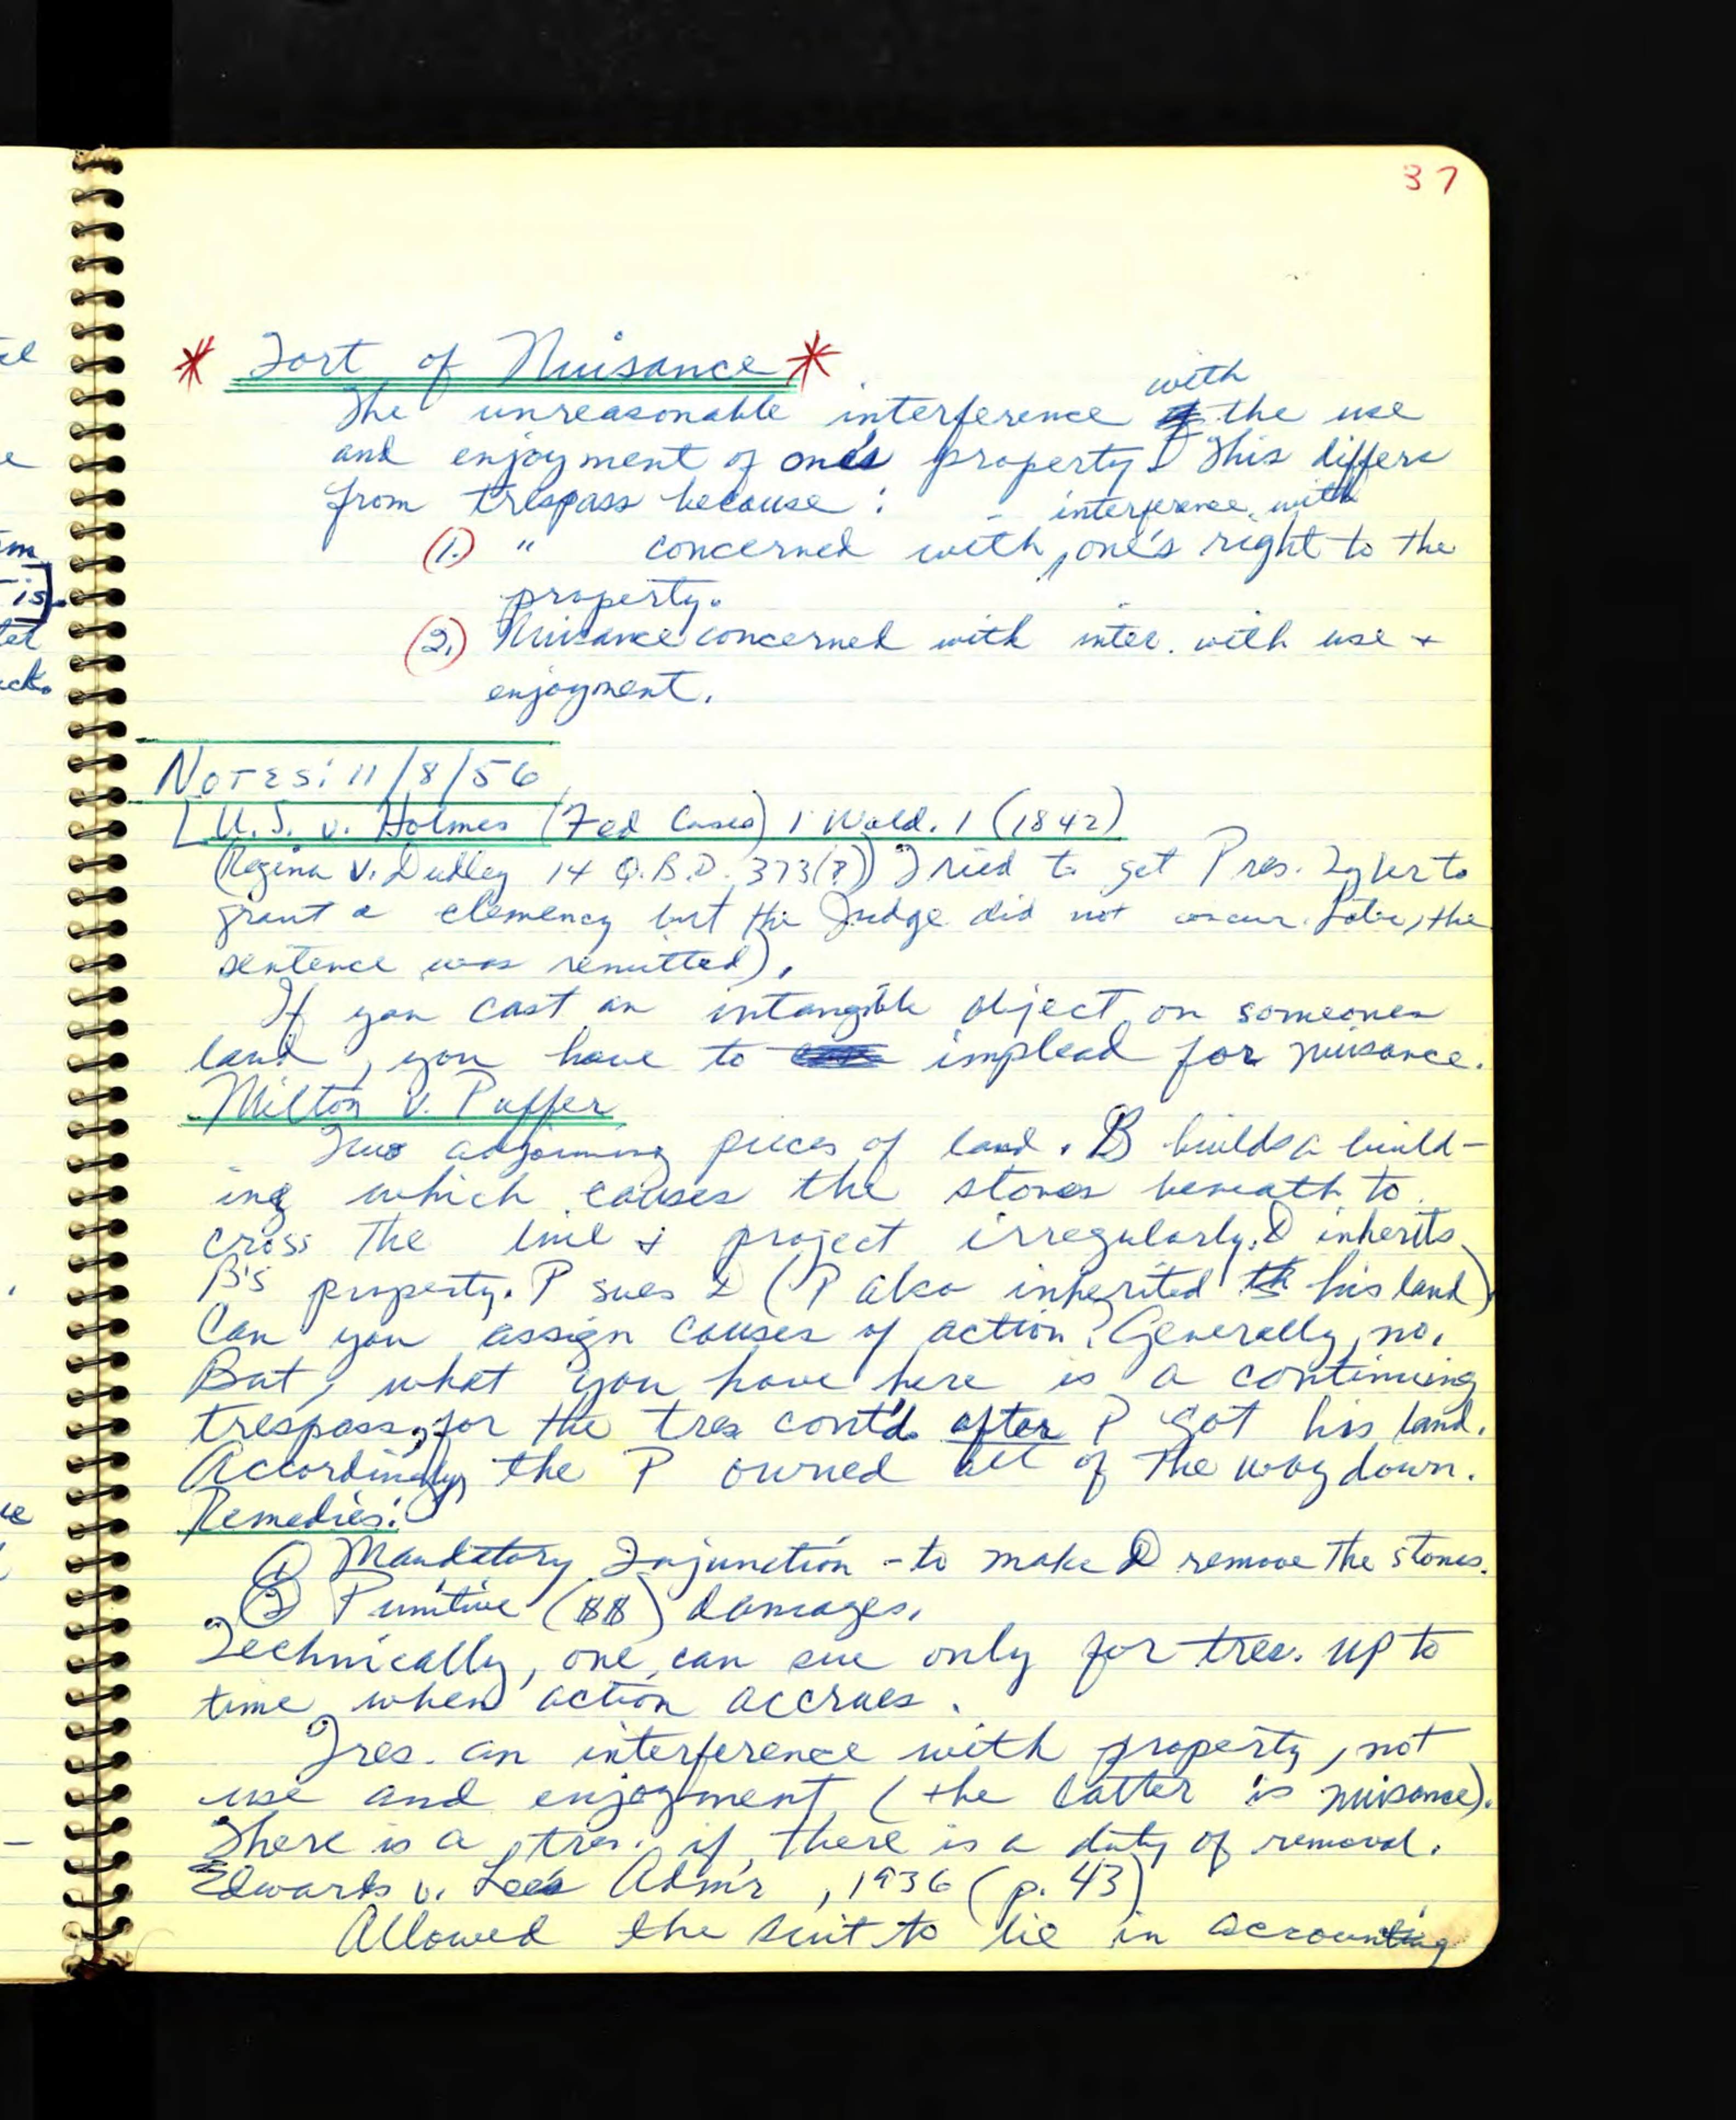 37
* Tort of Nuisance *
with
The unreasonable interference the use
and enjoyment of one's property. This differs
from trespass because :
interference with
(1.) " concerned with, one's right to the
property.
(2.) Nuisance concerned with inter. with use +
enjoyment.
NOTES: 11/8/56
[U.S. v. Holmes (Fed Cases) 1 Wald. 1 (1842)
(Regina v. Dudley 14 Q.B.D. 373(?)) Tried to get Pres. Tyler to
grant a clemency but the Judge did not concur. Later, the
sentence was remitted).
If you cast an intangible object on someones
land, you have to implead for nuisance.
Milton v. Puffer
Two adjoining pieces of land. B builds a build-
ing which causes the stones beneath to
cross the line & project irregularly. D inherits
B's property. P sues D (P also inherited his land)
Can you assign causes of action? Generally, no.
But, what you have here is a continuing
trespass, for the tres cont'd. after P got his land.
Accordingly, the P owned all of the way down.
Remedies:
(1) Mandatory Injunction - to make D remove the stones.
(2) Punitive ($$) damages.
Technically, one can sue only for tres. up to
time when action accrues.
Tres. an interference with property, not
use and enjoyment (the latter is nuisance).
There is a tres. if there is a duty of removal.
Edwards v. Lee's Adm'r, 1936 (p. 43)
Allowed the suit to lie in accounting